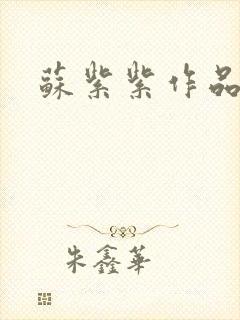 蘇紫紫作品
朱鑫華